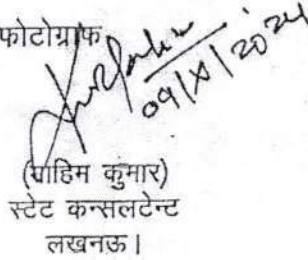 फोटोग्राफ
09/X/2024
(माहिम कुमार)
स्टेट कन्सलटेन्ट
लखनऊ।